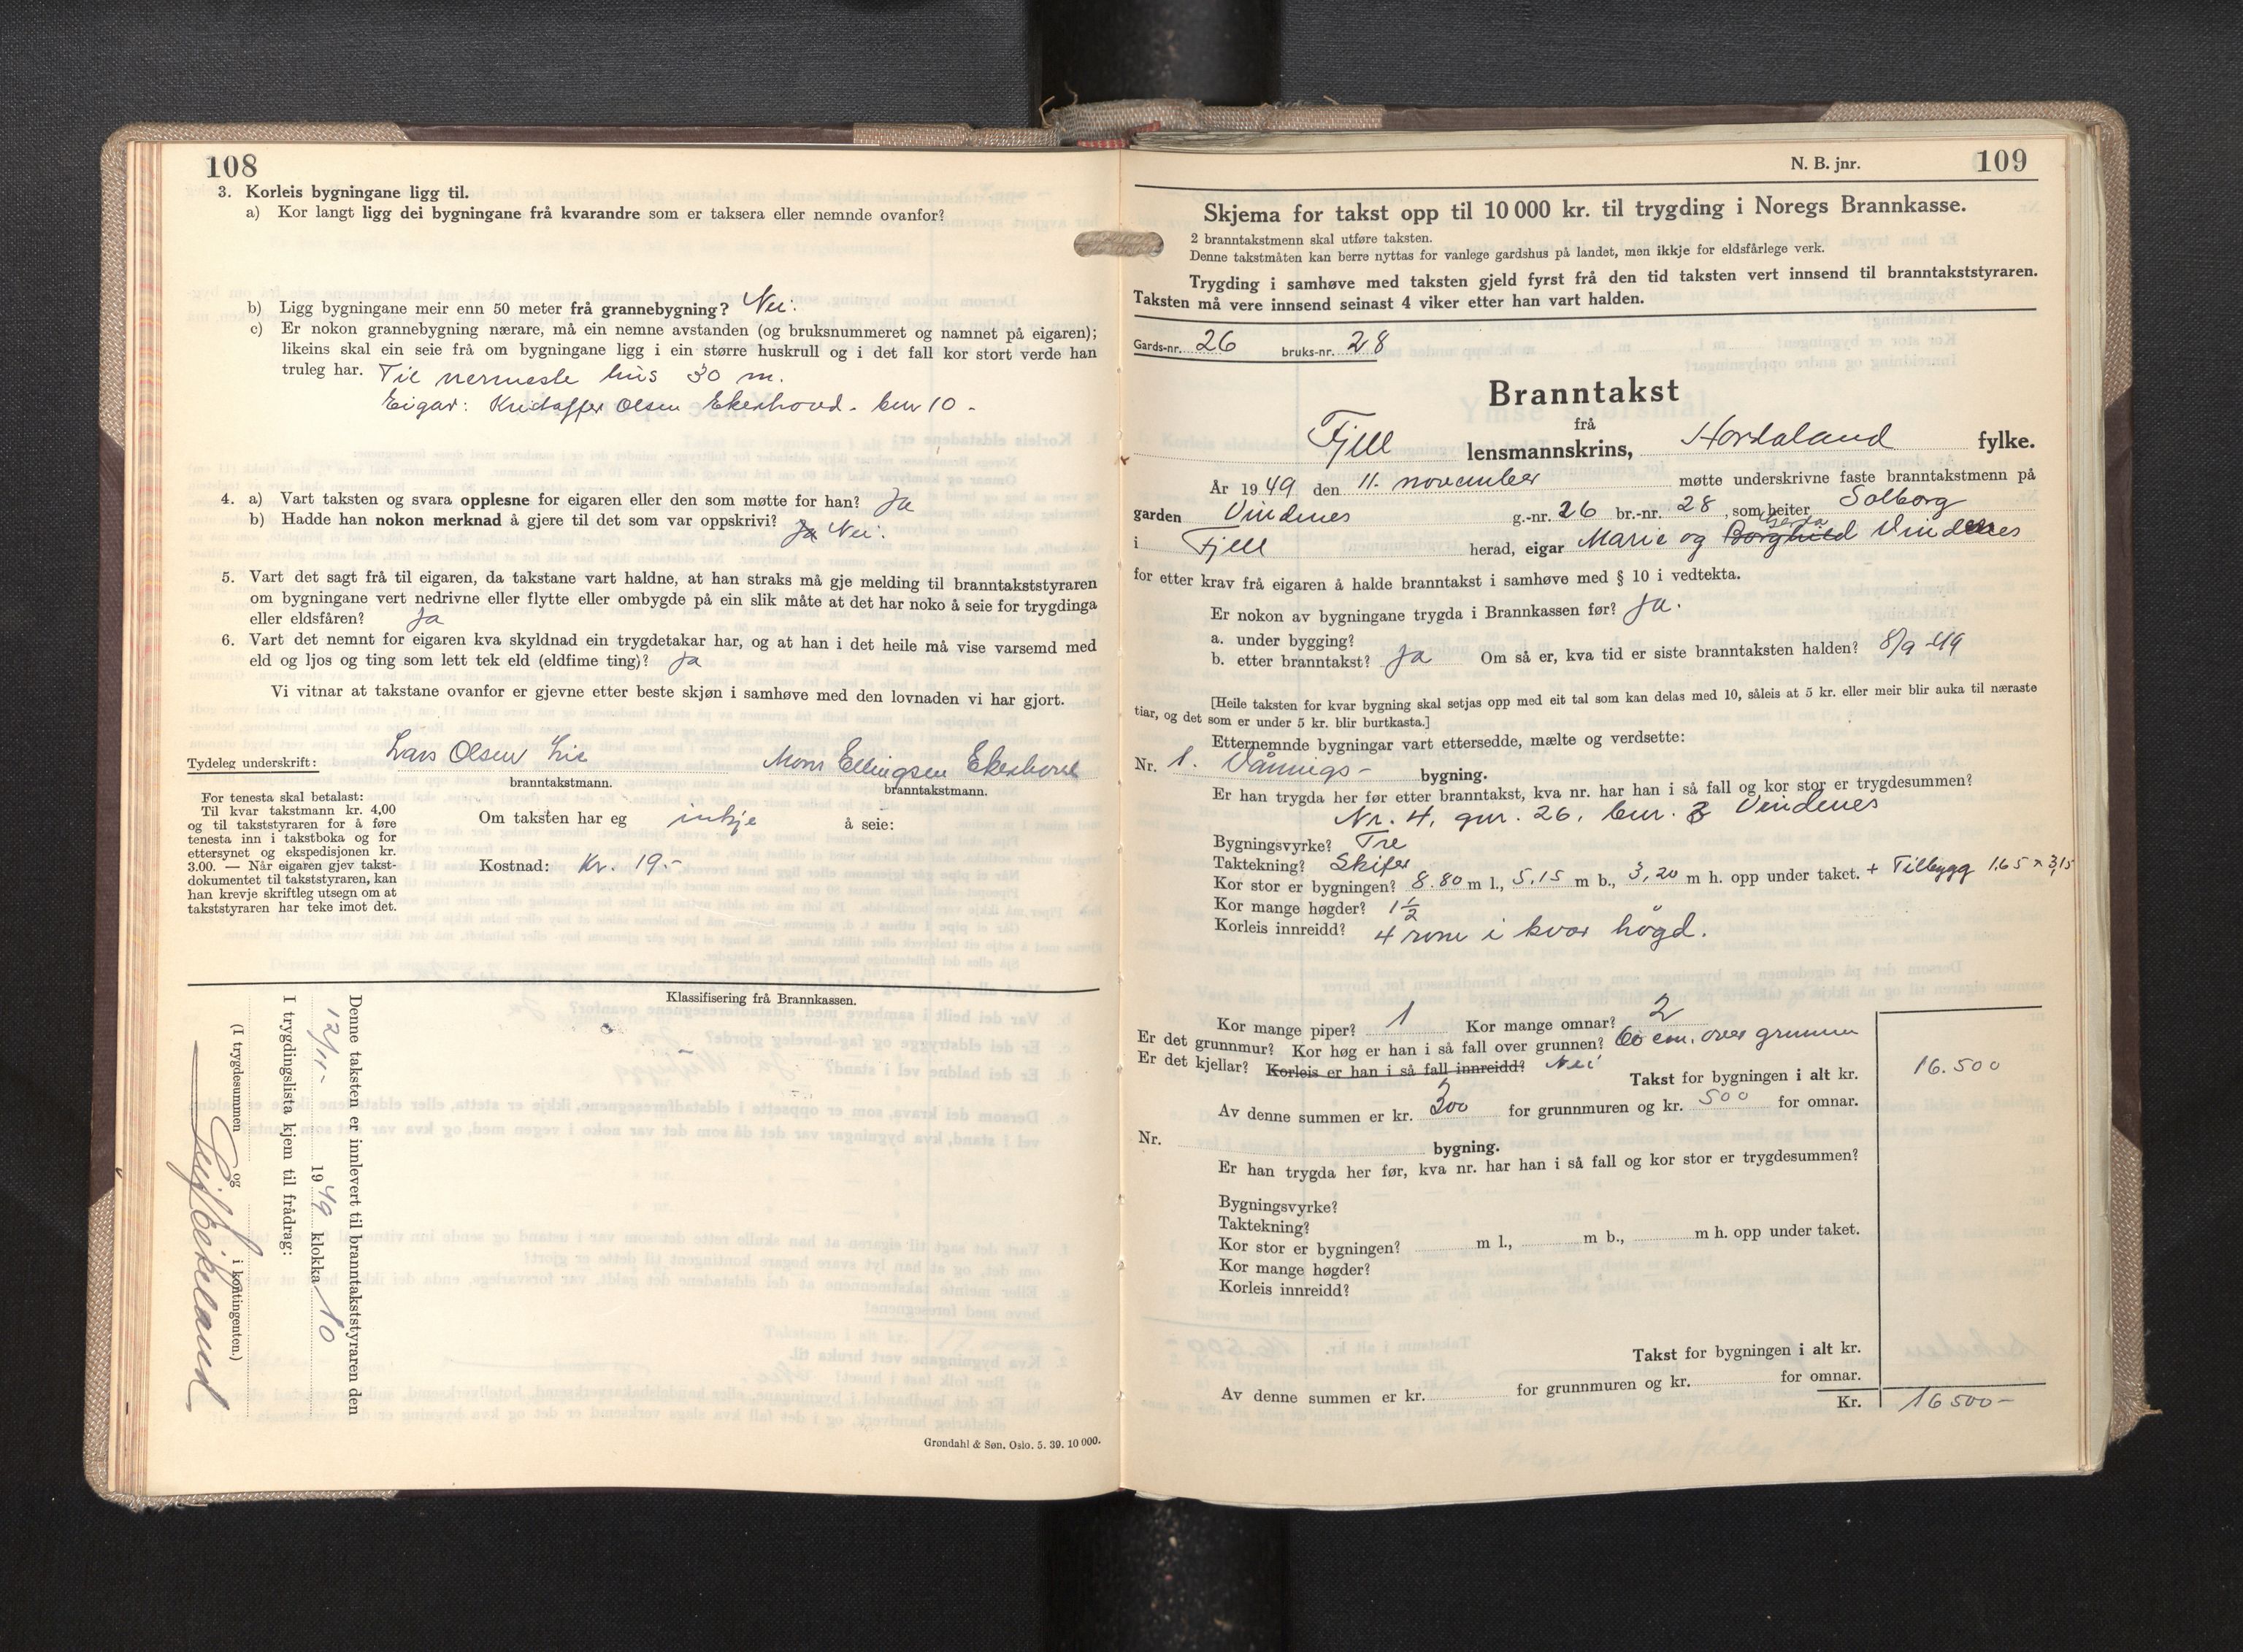 108
3. Korleis bygningane ligg til.
a) Kor langt ligg dei bygningane frå kvarandre som er taksera eller nemnde ovanfor?
b) Ligg bygningane meir enn 50 meter frå grannebygning? Nei.
c) Er nokon grannebygning nærare, må ein nemne avstanden (og bruksnummeret og namnet på eigaren);
likeins skal ein seie frå om bygningane ligg i ein større huskrull og i det fall kor stort verde han
truleg har. Til nermeste hus 30 m.
Eigar: Kristoffer Olsen Ekerhovd. bnr 10.
4. a) Vart taksten og svara opplesne for eigaren eller den som møtte for han? Ja
b) Hadde han nokon merknad å gjere til det som var oppskrivi? Ja Nei.
5. Vart det sagt frå til eigaren, da takstane vart haldne, at han straks må gje melding til branntakststyraren
om bygningane vert nedrivne eller flytte eller ombygde på ein slik måte at det har noko å seie for trygdinga
eller eldsfåren? Ja
6. Vart det nemnt for eigaren kva skyldnad ein trygdetakar har, og at han i det heile må vise varsemd med
eld og ljos og ting som lett tek eld (eldfime ting)? Ja
Vi vitnar at takstane ovanfor er gjevne etter beste skjøn i samhøve med den lovnaden vi har gjort.
Tydeleg underskrift: Lars Olsen Lie Mons Ellingsen Ekerhovd
branntakstmann. branntakstmann.
For tenesta skal betalast:
Til kvar takstmann kr. 4,00
og til takststyraren for å føre
tenesta inn i takstboka og for
ettersynet og ekspedisjonen kr.
3.00. — Når eigaren gjev takst-
dokumentet til takststyraren, kan
han krevje skriftleg utsegn om at
takststyraren har teke imot det.
Om taksten har eg inkje å seie:
Kostnad: Kr. 19.-
Klassifisering frå Brannkassen.
Denne taksten er innlevert til branntakststyraren den
12/11- 1949 klokka 10
I trygdingslista kjem til frådrag:
(I trygdesummen og i kontingenten.)
Grøndahl & Søn, Oslo. 5. 39. 10 000.
N. B. jnr. 109
Skjema for takst opp til 10 000 kr. til trygding i Noregs Brannkasse.
2 branntakstmenn skal utføre taksten.
Denne takstmåten kan berre nyttas for vanlege gardshus på landet, men ikkje for eldsfårlege verk.
Trygding i samhøve med taksten gjeld fyrst frå den tid taksten vert innsend til branntakststyraren.
Taksten må vere innsend seinast 4 viker etter han vart halden.
Gards-nr. 26 bruks-nr. 28
Branntakst
frå
Fjell lensmannskrins, Hordaland fylke.
År 1949 den 11. november møtte underskrivne faste branntakstmenn på
garden Vindenes g.-nr. 26 br.-nr. 28, som heiter Solborg
i Fjell herad, eigar Marie og Borghild Vindenes
for etter krav frå eigaren å halde branntakst i samhøve med § 10 i vedtekta.
Er nokon av bygningane trygda i Brannkassen før? Ja.
a. under bygging?
b. etter branntakst? Ja Om så er, kva tid er siste branntaksten halden? 8/9-49
[Heile taksten for kvar bygning skal setjas opp med eit tal som kan delas med 10, såleis at 5 kr. eller meir blir auka til næraste
tiar, og det som er under 5 kr. blir burtkasta.]
Etternemnde bygningar vart ettersedde, mælte og verdsette:
Nr. 1. Vånings- bygning.
Er han trygda her før etter branntakst, kva nr. har han i så fall og kor stor er trygdesummen?
Nr. 4, gnr. 26, bnr. 3 Vindenes
Bygningsvyrke? Tre
Taktekning? Skifer
Kor stor er bygningen? 8.80 m l., 5.15 m b., 3,20 m h. opp under taket. + Tilbygg 1.65 x 3,15
Kor mange høgder? 1½
Korleis innreidd? 4 rom i kvar høgd.
Kor mange piper? 1 Kor mange omnar? 2
Er det grunnmur? Kor høg er han i så fall over grunnen? 60 cm. over grunnen
Er det kjellar? Korleis er han i så fall innreidd? Nei
Takst for bygningen i alt kr. 16.500
Av denne summen er kr. 300 for grunnmuren og kr. 500 for omnar.
Nr. bygning.
Er han trygda her før, kva nr. har han i så fall og kor stor er trygdesummen?
Bygningsvyrke?
Taktekning?
Kor stor er bygningen? m l., m b., m h. opp under taket.
Kor mange høgder?
Korleis innreidd?
Takst for bygningen i alt kr.
Av denne summen er kr. for grunnmuren og kr. for omnar.
Kr. 16500-